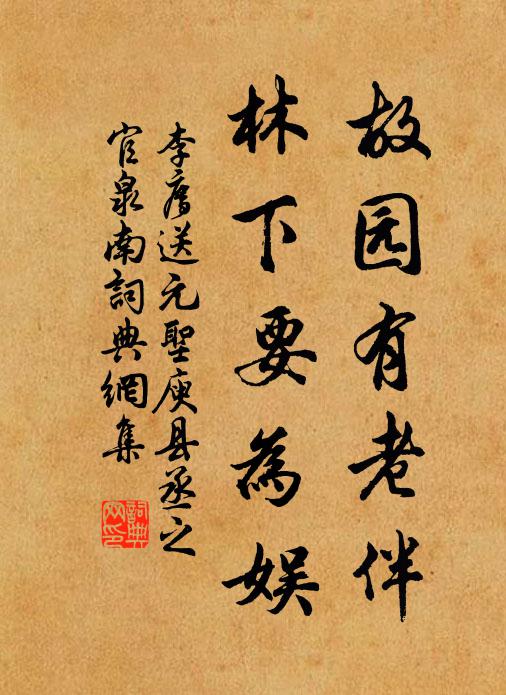 故园有老伴
林下要為娱
李送元聖庾县丞之
官泉南詞典網集
詞典
网印